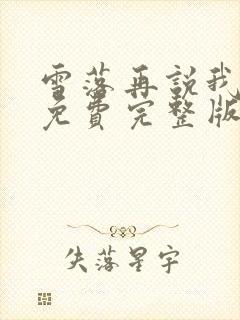 雪落再說我
免費完整版
失落星宇